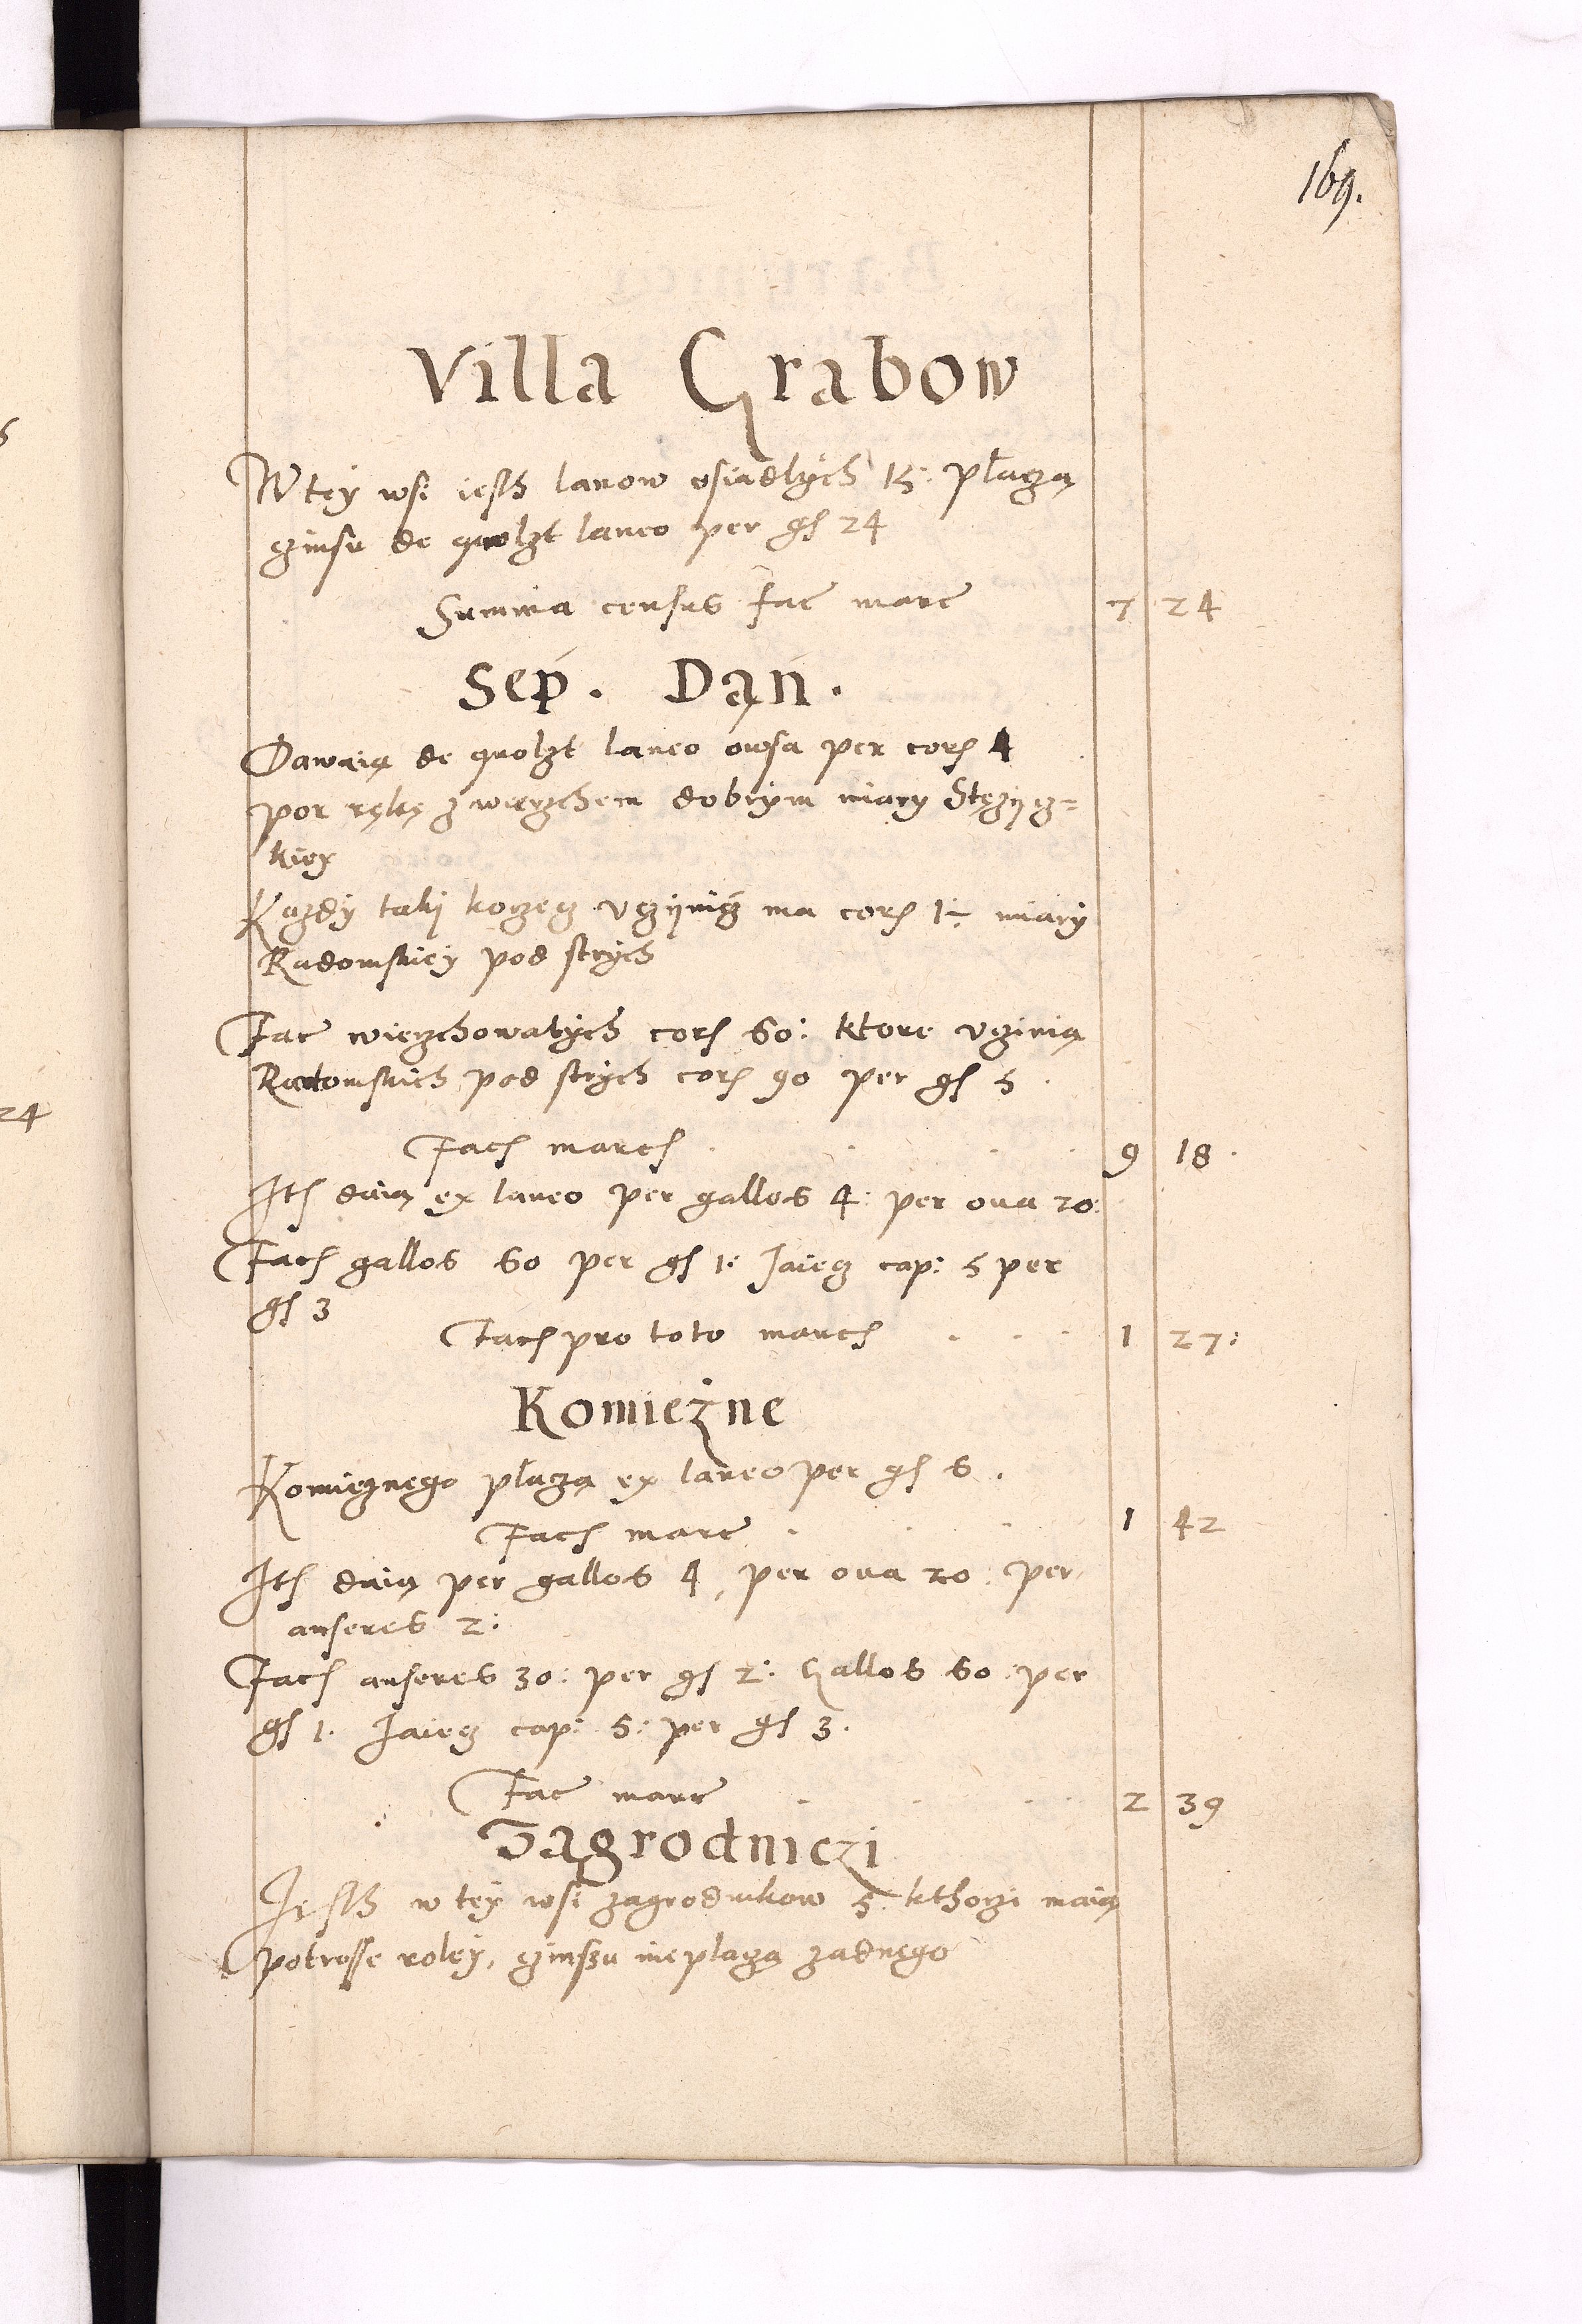 169.
Villa Grabow
W tey wsi iesth lanow osiadlych 15: płaczą
czinsu de quolzt laneo per gs 24
Summa census fac marc 7 24
Sep. Dań.
Dawaią de quolzt laneo owsa per cors 4
por rękę z wierzchem dobrym miary Stęzycz=
kiey
Kazdy takj korzecz vczynicz ma cors 1÷ miary
Radomskiey pod strych
Fac wierzchowatych cors 60: ktore vczinią
Radomskich pod strych cors 90 per gs 5.
Facs marcs . . . . 9 18.
Its daią ex laneo per gallos 4: per oua 20:
Facs gallos 60 per gs 1: Jaiecz cap: 5 per
gs 3
Facs pro toto marcs . . . 1 27:
Komieżne
Komieznego płaczą ex laneo per gs 6.
Facs marc . . . 1 42
Its daią per gallos 4, per oua 20: per
anseres 2:
Facs anseres 30: per gs 2: Gallos 60 per
gs 1. Jaiecz cap: 5: per gs 3.
Fac marc . . . . 2 39
Zagrodniczi
Jesth w tey wsi zagrodnikow 5. kthorzi maią
potrosse roley, czinszu nie płaczą zadnego
24